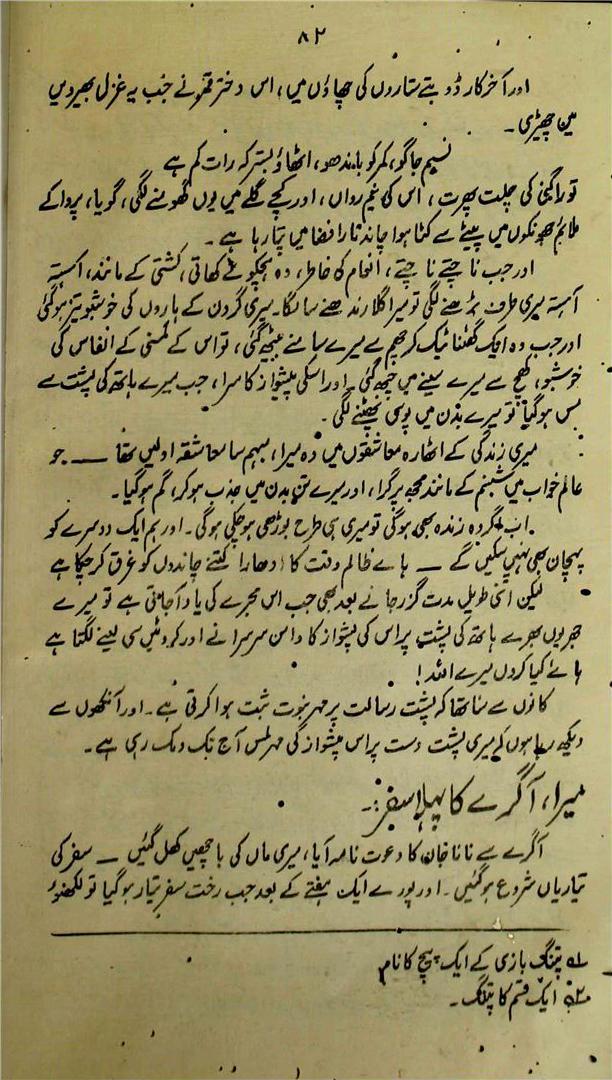 ۸۲
اور آخر کار ڈوبتے ستاروں کی چھاؤں میں، اس دختر قمر نے جب یہ غزل بھیرویں
میں چھیڑی۔
نسیم جاگو، کمر کو باندھو، اٹھاؤ بستر کہ رات کم ہے
تو راگنی کی چلت پھرت، اس کی نیم رواں، اور کچے گلے میں یوں گھومنے لگی، گویا، پروا کے
ملائم جھونکوں میں پیٹے سے کٹا ہوا چاند تارا فضا میں تپا رہا ہے۔
اور جب ناچتے ناچتے، انعام کی خاطر، وہ ہچکولے کھاتی، کشتی کے مانند، آہستہ
آہستہ میری طرف بڑھنے لگی تو میرا گلا رندھنے سا لگا۔ میری گردن کے ہاروں کی خوشبو تیز ہو گئی
اور جب وہ ایک گھٹنا ٹیک کر چھم سے میرے سامنے بیٹھ گئی، تو اس کے کمسنی کے انفاس کی
خوشبو، کھچ سے میرے سینے میں چبھ گئی۔ اور اسکی پیشواز کا سرا، جب میرے ہاتھ کی پشت سے
مس ہو گیا تو میرے بدن میں پوسی پھٹنے لگی۔
میری زندگی کے اٹھارہ معاشقوں میں وہ میرا، مبہم سا معاشقہ اولیں تھا ــ جو
عالم خواب میں شبنم کے مانند مجھ پر گرا، اور میرے تن بدن میں جذب ہو کر، گم ہو گیا۔
اب اگر وہ زندہ بھی ہو گی تو میری ہی طرح بوڑھی ہو چکی ہو گی۔ اور ہم ایک دوسرے کو
پہچان بھی نہیں سکیں گے ــ ہائے ظالم وقت کا دھارا کتنے چاندوں کو غرق کر چکا ہے
لیکن اتنی طویل مدت گزر جانے بعد بھی جب اس مجرے کی یاد آ جاتی ہے تو میرے
جھریوں بھرے ہاتھ کی پشت پر اس کی پشواز کا دامن سرسرانے اور کروٹیں سی لینے لگتا ہے
ہائے کیا کروں میرے اللہ!
کانوں سے سنا تھا کہ پشت رسالت پر مہر نبوت ثبت ہوا کرتی ہے۔ اور آنکھوں سے
دیکھ رہا ہوں کہ میری پشت دست پر اس پیشواز کی مہر لمس آج تک دمک رہی ہے۔
میرا، آگرے کا پہلا سفر:۔
آگرے سے نانا جان کا دعوت نامہ آیا، میری ماں کی باچھیں کھل گئیں ــ سفر کی
تیاریاں شروع ہو گئیں۔ اور پورے ایک ہفتے کے بعد جب رخت سفر تیار ہو گیا تو لکھنؤ
۱؎ پتنگ بازی کے ایک پیچ کا نام
۲؎ ایک قسم کا پتنگ۔